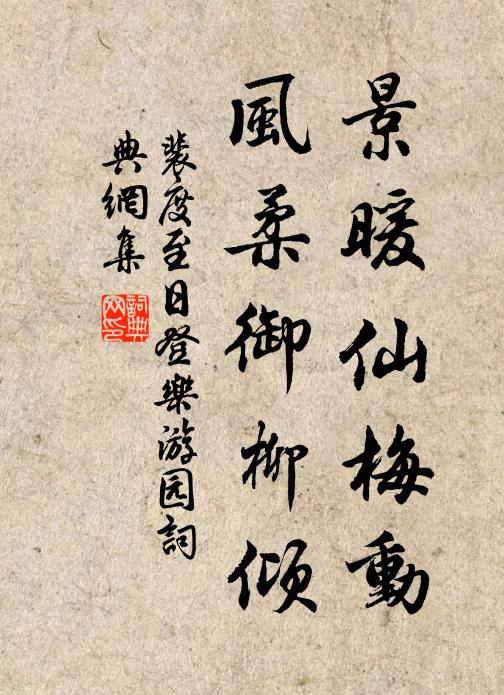 景暖仙梅動
風柔御柳傾
裴度至日登樂游园詞
典網集
詞典网印